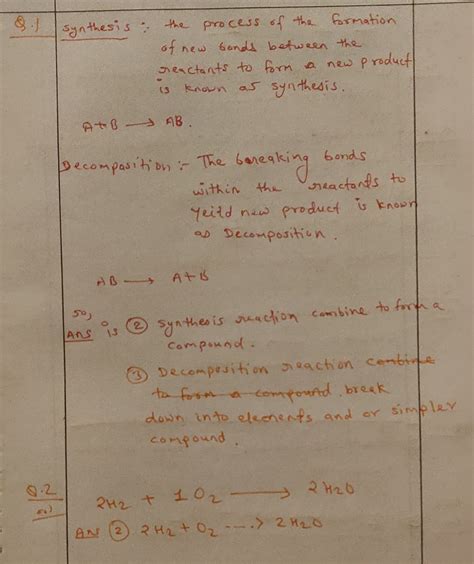 Q.1 Synthesis :- the process of the formation
of new bonds between the
reactants to form a new product
is known as synthesis.
A+B → AB.
Decomposition :- The breaking bonds
within the reactants to
Yeild new product is known
as Decomposition.
AB → A+B
so,
Ans is ② Synthesis reaction combine to form a
compound.
③ Decomposition reaction combine
to form a compound break
down into elements and or simpler
compound.
Q.2
2H2 + 1O2 → 2H2O
Ans ② 2H2+O2 ----> 2H2O